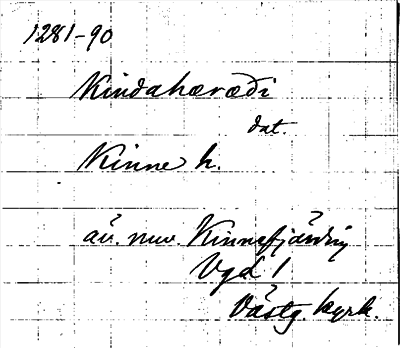 1281-90
Kindahæræði
dat.
Kinne h.
äv. nuv. Kinnefjärding
Vgd 1
Västg. kyrk.